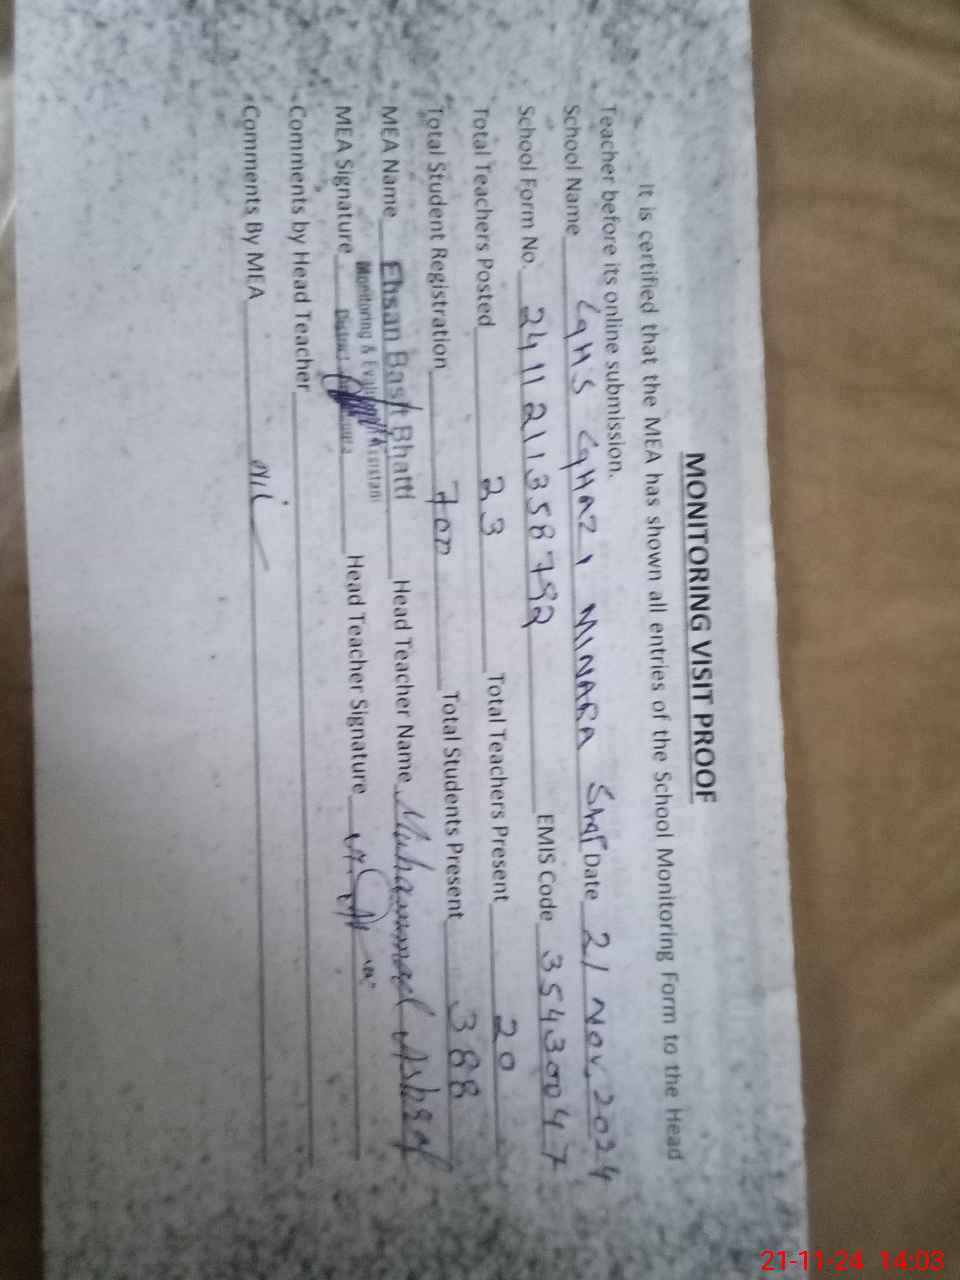 MONITORING VISIT PROOF
It is certified that the MEA has shown all entries of the School Monitoring Form to the Head
Teacher before its online submission.
School Name GHS GHAZI MINARA Date 21 Nov, 2024
School Form No. 2411211358792 EMIS Code 35430047
Total Teachers Posted 23 Total Teachers Present 20
Total Student Registration 700 Total Students Present 388
MEA Name Ehsan Basit Bhatti Head Teacher Name Muhammad Ashraf
Monitoring & Assistant
MEA Signature District Head Teacher Signature
Comments by Head Teacher
Comments By MEA Nil
21-11-24 14:03